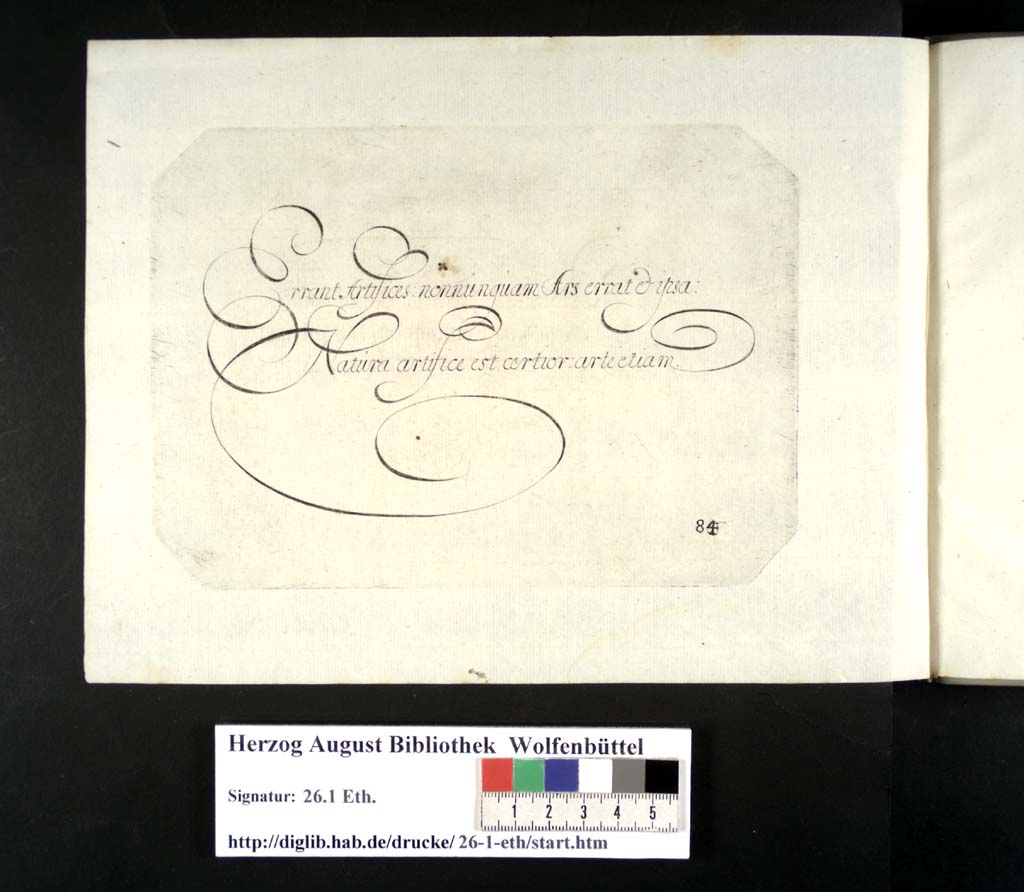 Errant Artifices nonnunquam Ars errat & ipsa:
Natura artifice est certior: arte etiam.
84
Herzog August Bibliothek Wolfenbüttel
Signatur: 26.1 Eth.
1 2 3 4 5
http://diglib.hab.de/drucke/ 26-1-eth/start.htm